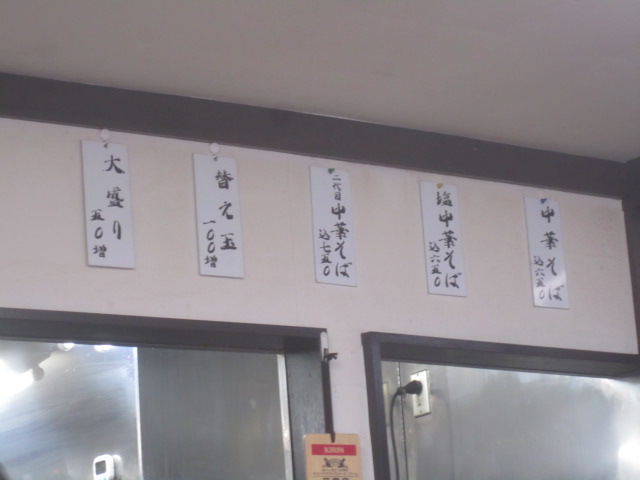 中華そば
込六五〇
塩中華そば
込六五〇
二代目中華そば
込七五〇
替え玉
一〇〇増
大盛り
五〇増
KIRIN